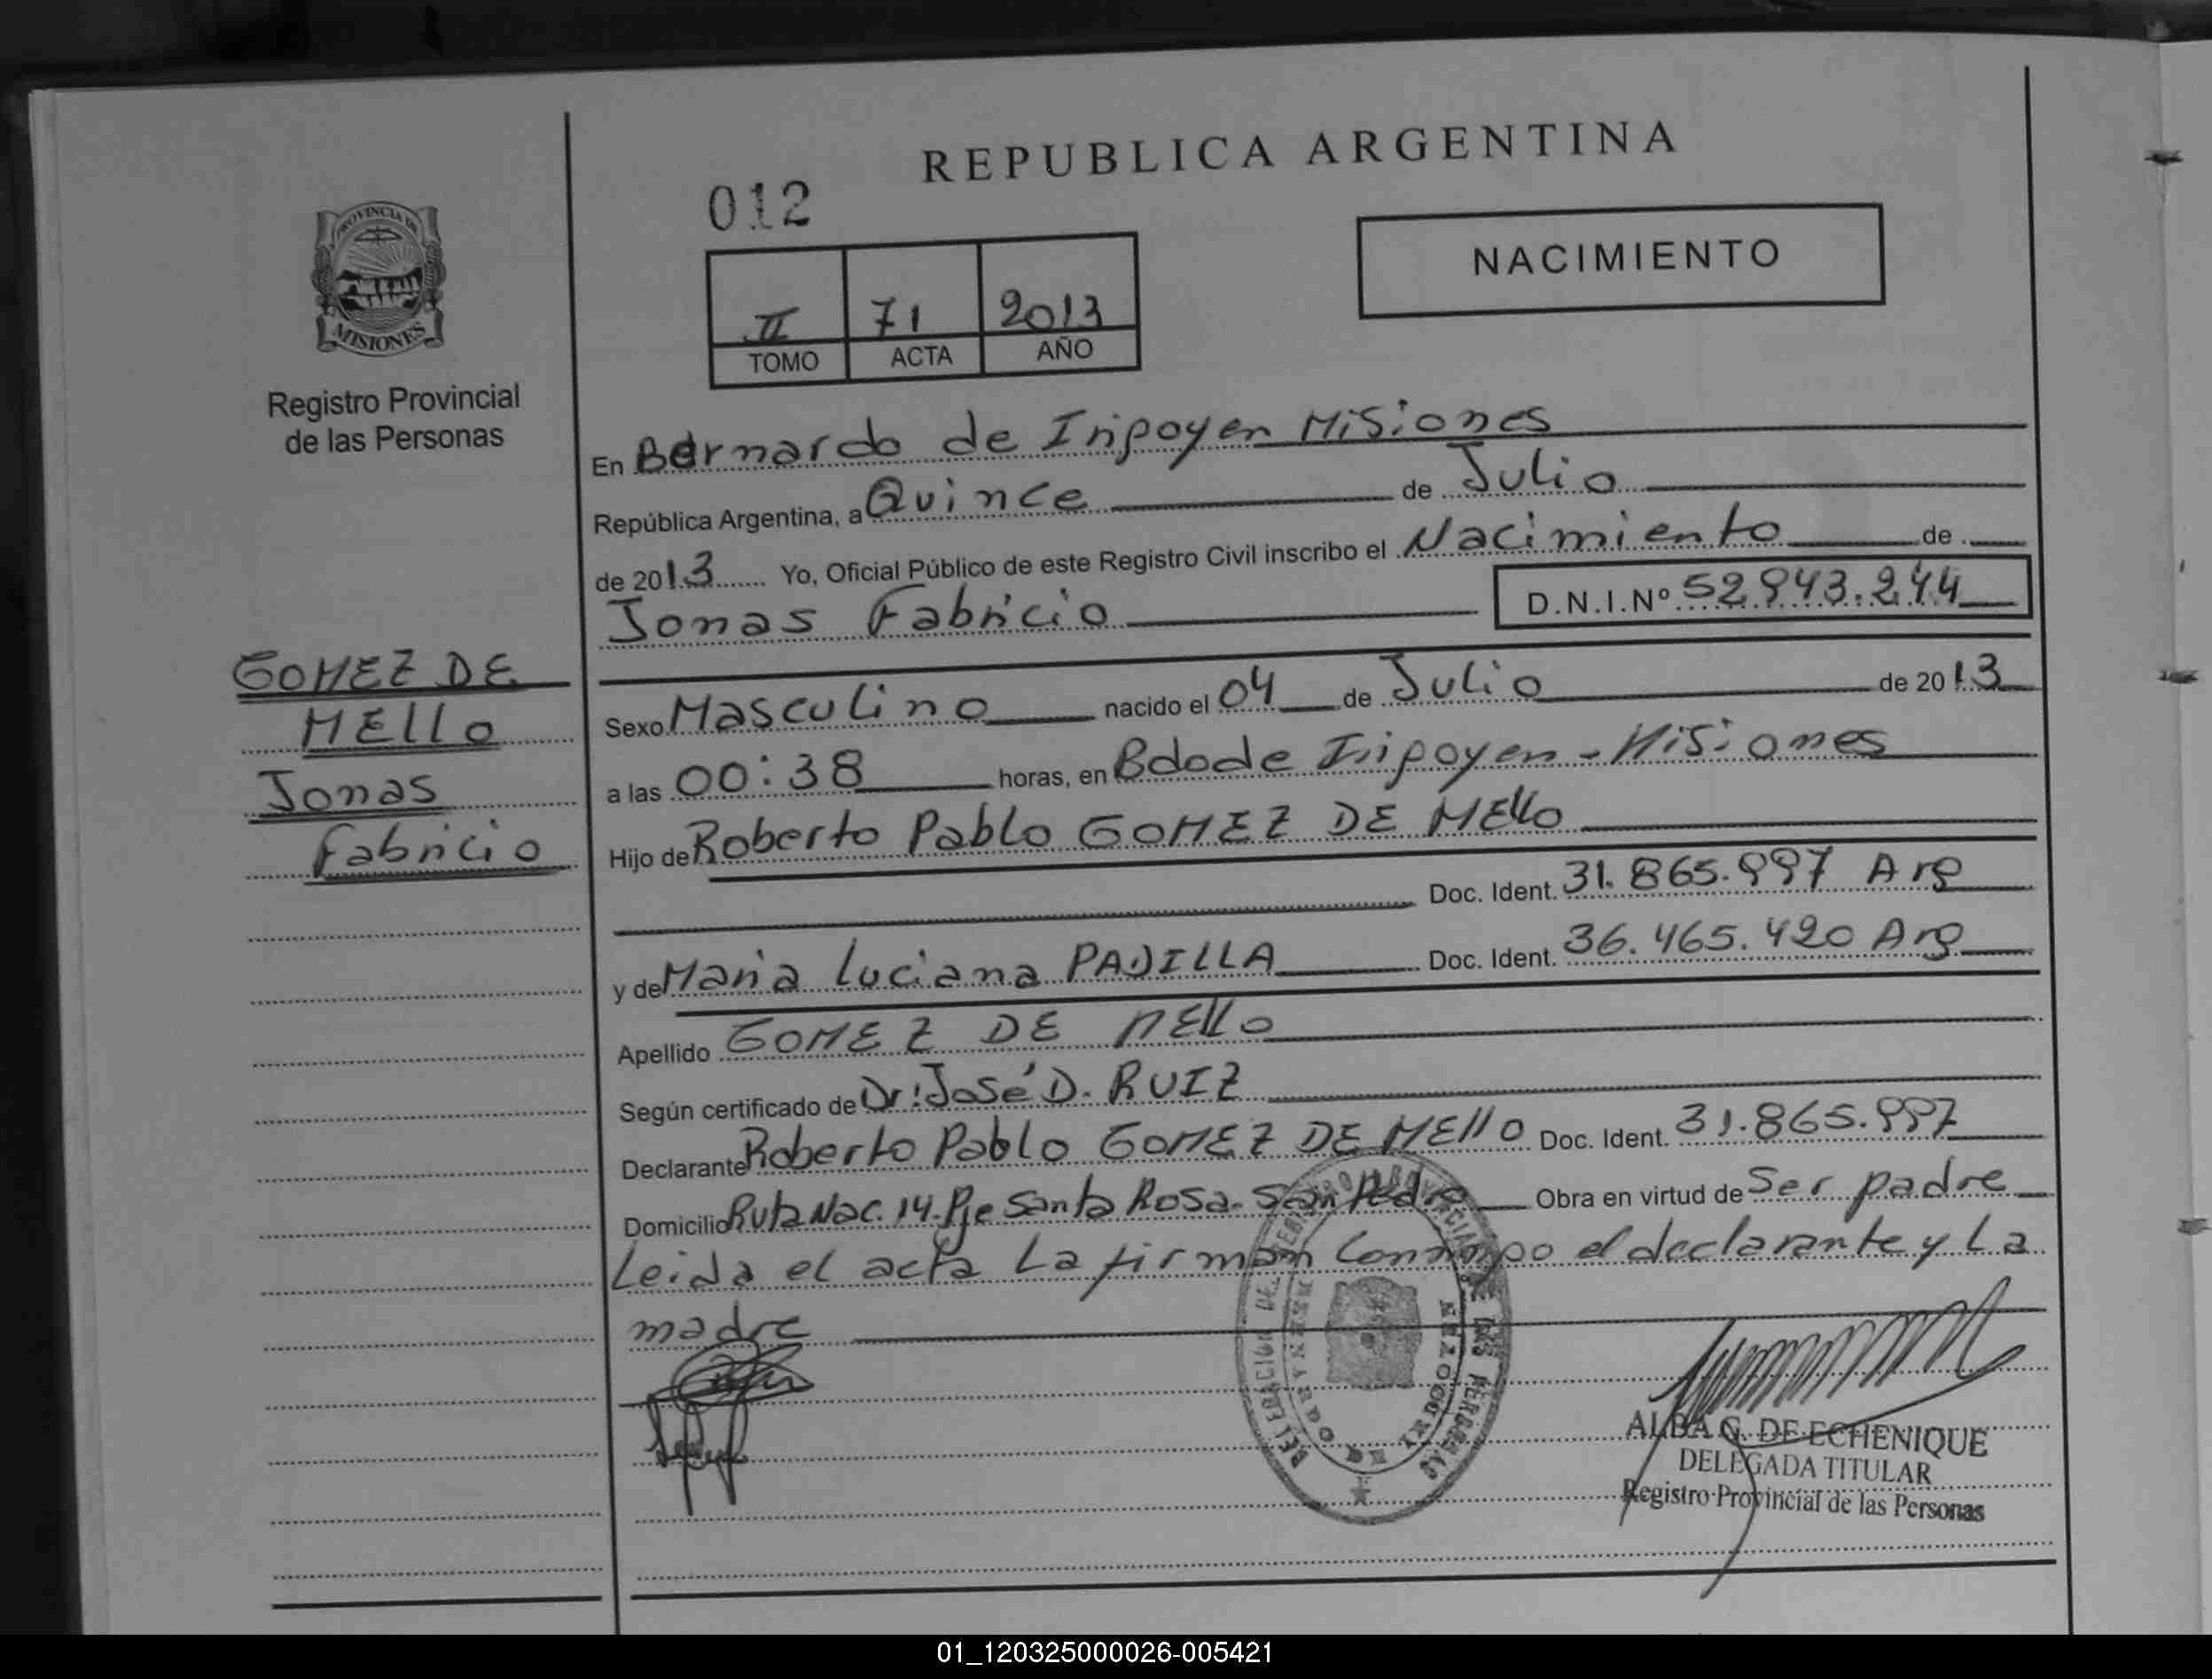 REPUBLICA ARGENTINA
012
NACIMIENTO
II 71 2013
TOMO ACTA AÑO
PROVINCIA DE
MISIONES
Registro Provincial
de las Personas
En Bernardo de Iripoyen Misiones
República Argentina, a Quince de Julio
de 2013 Yo, Oficial Público de este Registro Civil inscribo el Nacimiento de
Jonas Fabricio D.N.I.Nº 52.943.244
GOMEZ DE
MEllo
Jonas
Fabricio
Sexo Masculino nacido el 04 de Julio de 2013
a las 00:38 horas, en Bdo de Iripoyen - Misiones
Hijo de Roberto Pablo GOMEZ DE MEllo
Doc. Ident. 31.865.997 Arg
y de Maria Luciana PADILLA Doc. Ident. 36.465.420 Arg
Apellido GOMEZ DE MEllo
Según certificado de Dr: José D. RUIZ
Declarante Roberto Pablo GOMEZ DE MEllo Doc. Ident. 31.865.997
Domicilio Ruta Nac. 14. Pje Santa Rosa. San Pedro Obra en virtud de Ser padre
Leida el acta La firman Conmigo el declarante y La
madre
ALBA G. DE ECHENIQUE
DELEGADA TITULAR
Registro Provincial de las Personas
01_120325000026-005421